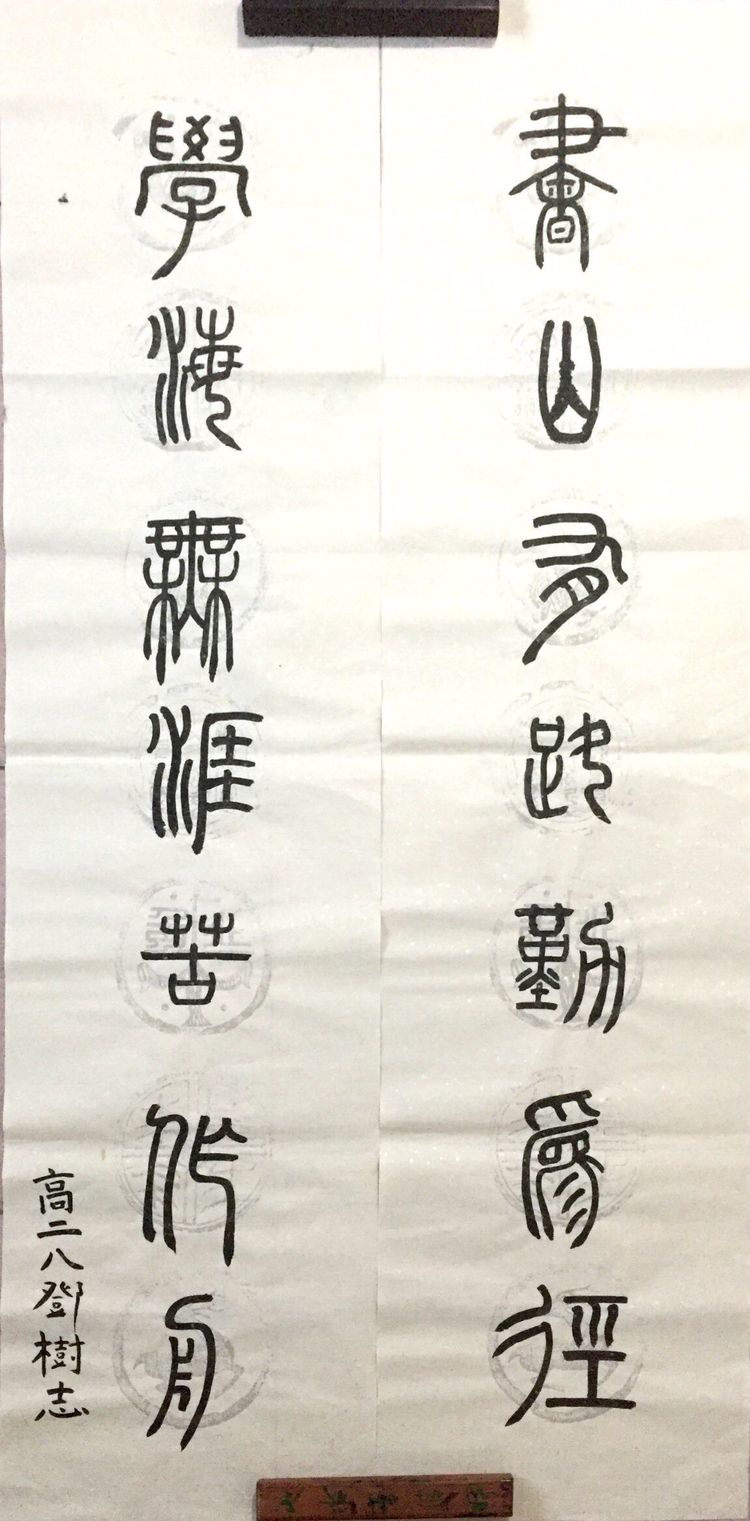 書山有路勤為徑
學海無涯苦作舟
高二八鄧樹志